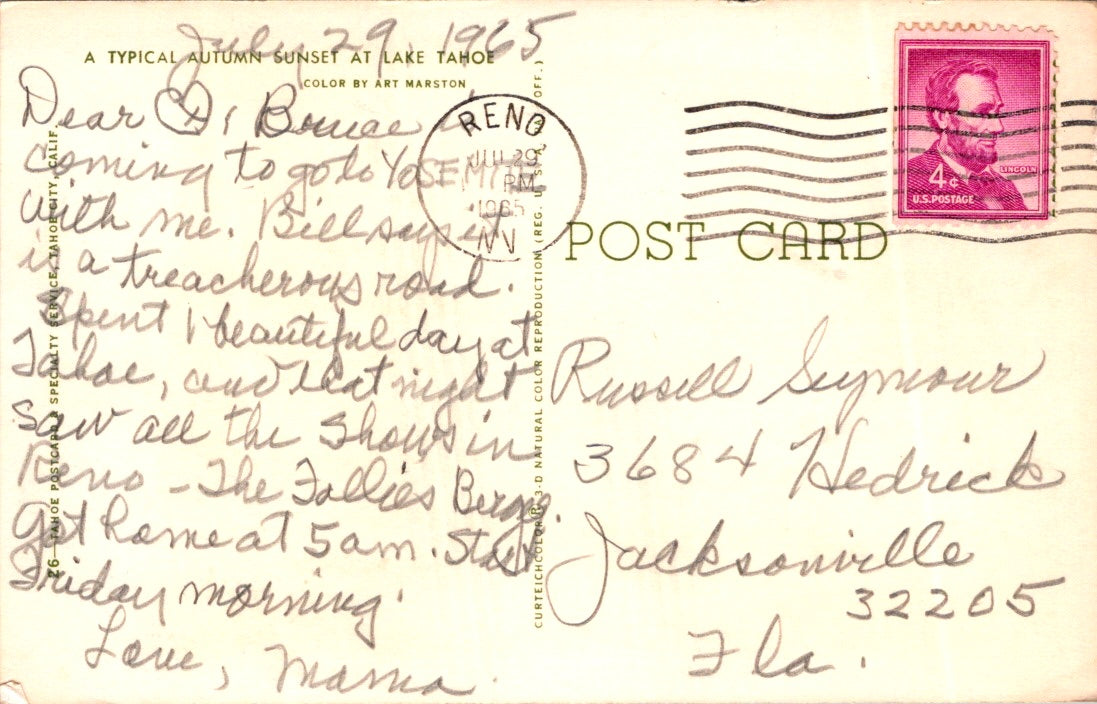 July, 29, 1965
A TYPICAL AUTUMN SUNSET AT LAKE TAHOE
COLOR BY ART MARSTON
Dear
coming to go to YOSEMITE
with me. Bill says it
is a treacherous road.
Spent 1 beautiful day at
Tahoe, and last night
saw all the shows in
Reno - The Follies Berg.
Got home at 5 am. Start
Friday morning.
Love, Mama
26—TAHOE POSTCARD & SPECIALTY SERVICE, TAHOE CITY, CALIF.
CURTEICHCOLOR® 3-D NATURAL COLOR REPRODUCTION (REG. U.S.A. OFF.)
RENO
JUL 29
PM
1965
NV
LINCOLN
4¢
U.S. POSTAGE
POST CARD
Russell Seymour
3684 Hedrick
Jacksonville
32205
Fla.